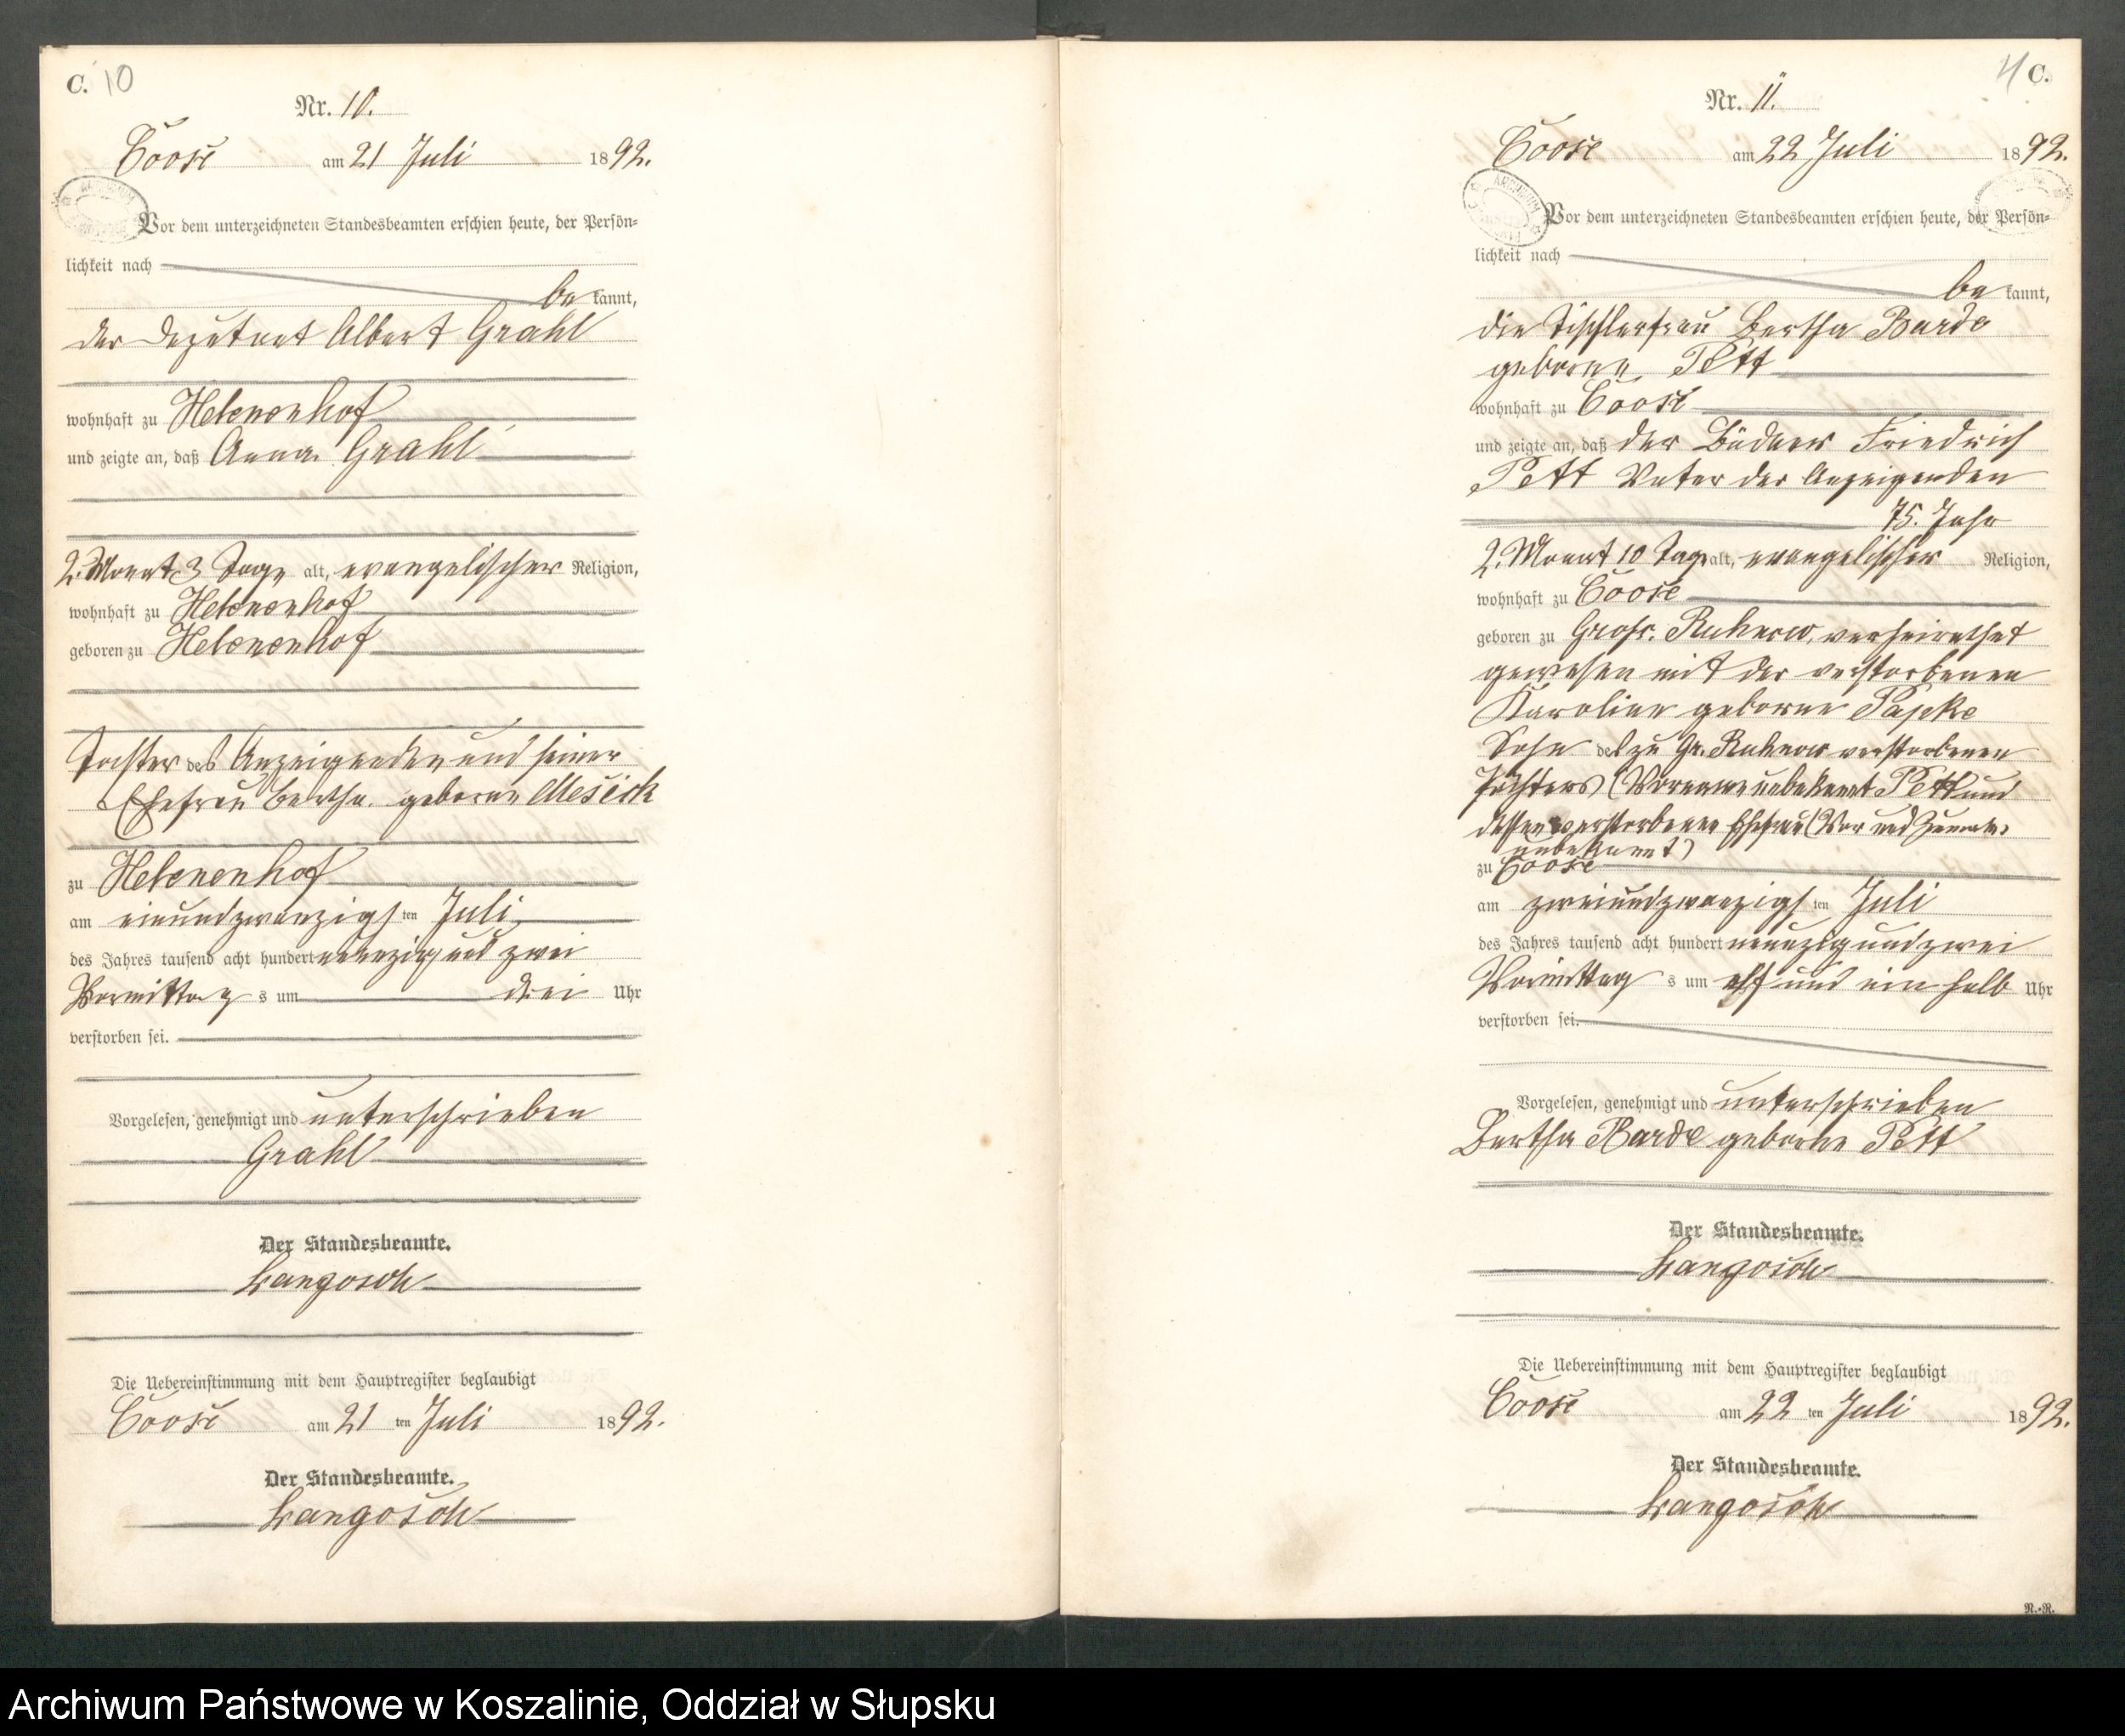 C. 10
Nr. 10.
Coose am 21 Juli 1892.
Vor dem unterzeichneten Standesbeamten erschien heute, der Persön-
lichkeit nach
bekannt,
der Deputant Albert Grahl
wohnhaft zu Helenenhof
und zeigte an, daß Anna Grahl
2. Monat 3 Tage alt, evangelischer Religion,
wohnhaft zu Helenenhof
geboren zu Helenenhof
Tochter des Anzeigenden und seiner
Ehefrau Bertha geborne Meseck
zu Helenenhof
am einundzwanzigsten Juli
des Jahres tausend acht hundert neunzig und zwei
Vormittags um drei Uhr
verstorben sei.
Vorgelesen, genehmigt und unterschrieben
Grahl
Der Standesbeamte.
Langosch
Die Uebereinstimmung mit dem Hauptregister beglaubigt
Coose am 21ten Juli 1892.
Der Standesbeamte.
Langosch
C.
Nr. 11.
Coose am 22 Juli 1892.
ARCHIWUM
Vor dem unterzeichneten Standesbeamten erschien heute, der Persön-
lichkeit nach
bekannt,
die Tischlerfrau Bertha Barde
geborne Pett
wohnhaft zu Coose
und zeigte an, daß der Büdner Friedrich
Pett Vater der Anzeigenden
75. Jahr
2. Monat 10 Tage alt, evangelischer Religion,
wohnhaft zu Coose
geboren zu Groß. Ruhnow, verheirathet
gewesen mit der verstorbenen
Karoline geborne Papke
Sohn des zu Gr. Ruhnow verstorbenen
Pächters (Vorname unbekannt Pett und
dessen verstorbenen Ehefrau (Vor und Zuname
unbekannt)
zu Coose
am zweiundzwanzigsten Juli
des Jahres tausend acht hundert neunzig und zwei
Vormittags um elf und ein halb Uhr
verstorben sei.
Vorgelesen, genehmigt und unterschrieben
Bertha Barde geborne Pett
Der Standesbeamte.
Langosch
Die Uebereinstimmung mit dem Hauptregister beglaubigt
Coose am 22ten Juli 1892.
Der Standesbeamte.
Langosch
R.-R.
Archiwum Państwowe w Koszalinie, Oddział w Słupsku